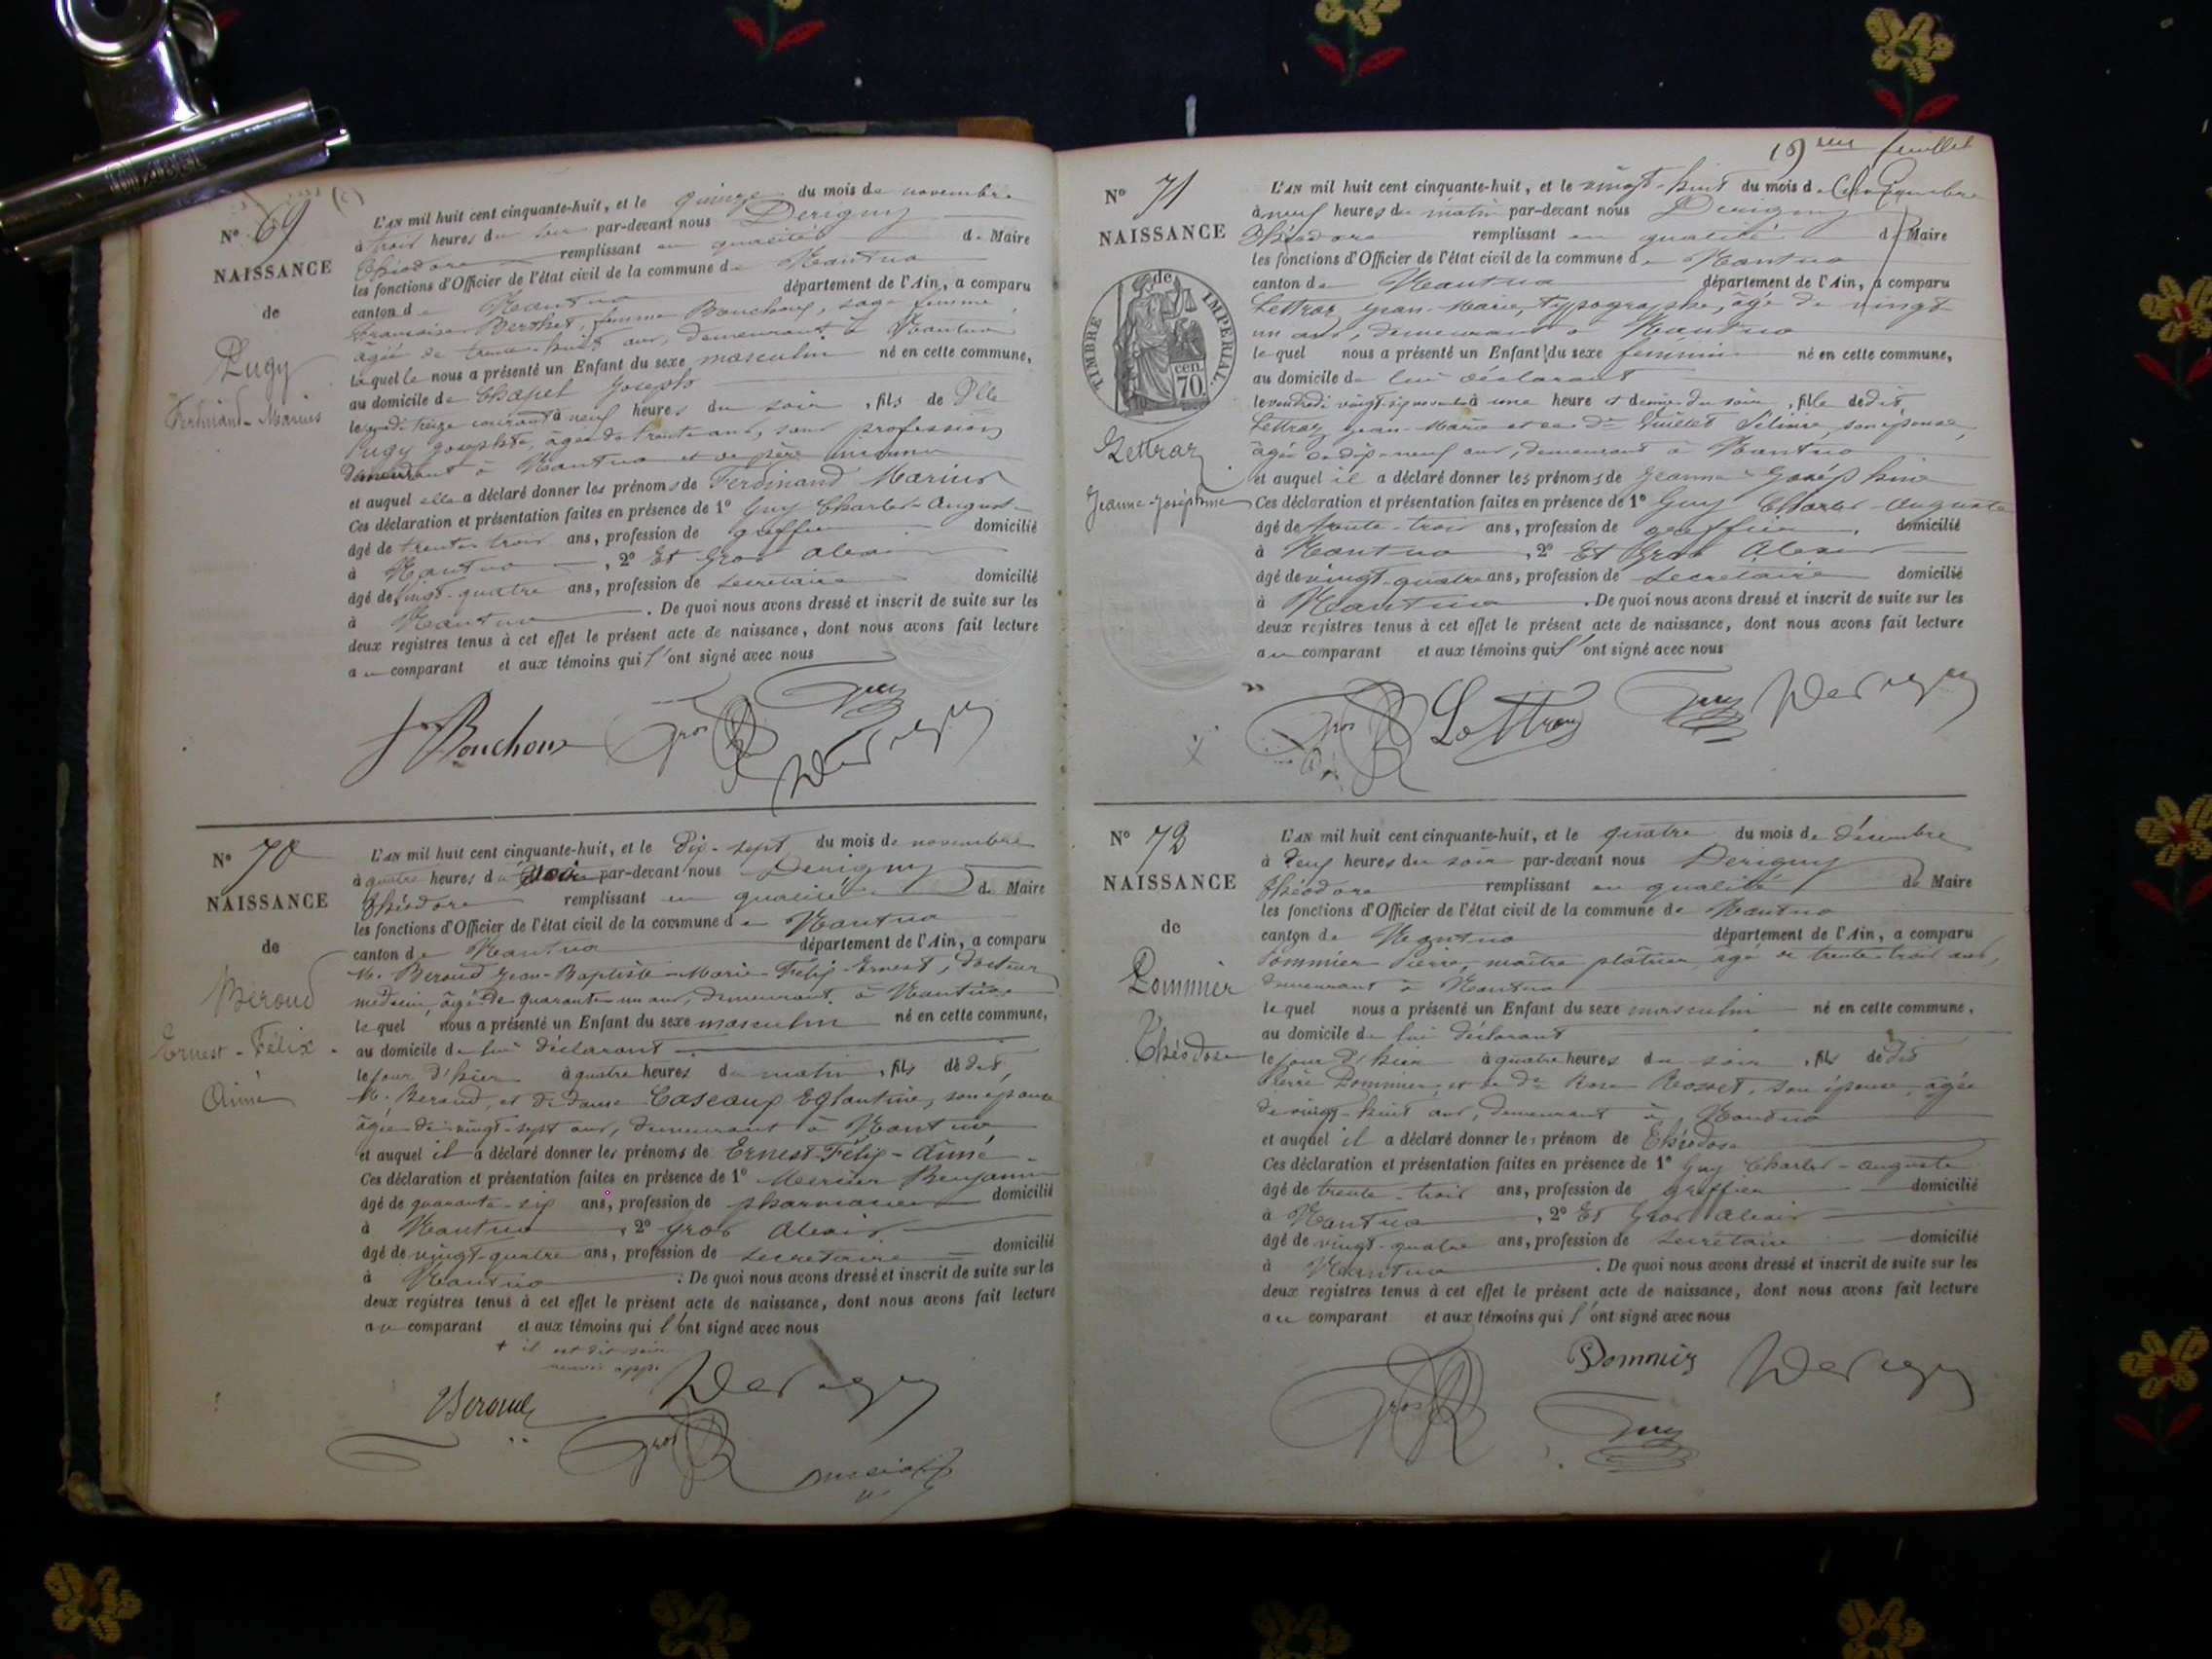 N° 69
NAISSANCE
de
Pugy
Ferdinand-Marius
L'AN mil huit cent cinquante-huit, et le quinze du mois de novembre
à trois heures du soir par-devant nous Derigny
Théodore remplissant en qualité de Maire
les fonctions d'Officier de l'état civil de la commune de Nantua
canton de Nantua département de l'Ain, a comparu
Françoise Berthet, femme Bouchoux, sage femme
âgée de trente-huit ans, demeurant à Nantua
laquelle nous a présenté un Enfant du sexe masculin né en cette commune,
au domicile de Chapel Joseph
le treize courant à neuf heures du soir, fils de Dlle
Pugy Josephte, âgée de trente ans, sans profession
demeurant à Nantua et de père inconnu
et auquel elle a déclaré donner les prénoms de Ferdinand Marius
Ces déclaration et présentation faites en présence de 1° Guy Charles-August
âgé de trente trois ans, profession de greffier domicilié
à Nantua, 2° Et Gros Alexis
âgé de vingt-quatre ans, profession de secrétaire domicilié
à Nantua. De quoi nous avons dressé et inscrit de suite sur les
deux registres tenus à cet effet le présent acte de naissance, dont nous avons fait lecture
au comparant et aux témoins qui l'ont signé avec nous
f Bouchoux Gros Guy Derigny
N° 70
NAISSANCE
de
Béroud
Ernest-Félix-
Aimé
L'AN mil huit cent cinquante-huit, et le dix-sept du mois de novembre
à quatre heures du par-devant nous Derigny
Théodore remplissant en qualité de Maire
les fonctions d'Officier de l'état civil de la commune de Nantua
canton de Nantua département de l'Ain, a comparu
M. Béroud Jean-Baptiste-Marie-Félix-Ernest, docteur
médecin, âgé de quarante un ans, demeurant à Nantua
lequel nous a présenté un Enfant du sexe masculin né en cette commune,
au domicile de lui déclarant
le jour d'hier à quatre heures du matin, fils de dit
M. Béroud, et de dame Cascaux Eglantine, son épouse
âgée de vingt-sept ans, demeurant à Nantua
et auquel il a déclaré donner les prénoms de Ernest-Félix-Aimé
Ces déclaration et présentation faites en présence de 1° Mercier Benjamin
âgé de quarante-six ans, profession de pharmacien domicilié
à Nantua, 2° Gros Alexis
âgé de vingt-quatre ans, profession de secrétaire domicilié
à Nantua. De quoi nous avons dressé et inscrit de suite sur les
deux registres tenus à cet effet le présent acte de naissance, dont nous avons fait lecture
au comparant et aux témoins qui l'ont signé avec nous
+ il est dit soir
Béroud Derigny
Gros
19eme feuillet
N° 71
NAISSANCE
TIMBRE IMPERIAL
cen. 70
de
Lettraz
Jeanne-Joséphine
L'AN mil huit cent cinquante-huit, et le vingt-huit du mois de
à neuf heures du matin par-devant nous Derigny
Théodore remplissant en qualité de Maire
les fonctions d'Officier de l'état civil de la commune de Nantua
canton de Nantua département de l'Ain, a comparu
Lettraz Jean-Marie, typographe, âgé de vingt-
un ans, demeurant à Nantua
lequel nous a présenté un Enfant du sexe féminin né en cette commune,
au domicile de lui déclarant
le vendredi vingt-six à une heure et demie du soir, fille de dit
Lettraz Jean-Marie et de De Guillet Séline, son épouse,
âgée de dix-neuf ans, demeurant à Nantua
et auquel il a déclaré donner les prénoms de Jeanne-Joséphine
Ces déclaration et présentation faites en présence de 1° Guy Charles-Auguste
âgé de trente-trois ans, profession de greffier, domicilié
à Nantua, 2° Et Gros Alexis
âgé de vingt-quatre ans, profession de secrétaire domicilié
à Nantua. De quoi nous avons dressé et inscrit de suite sur les
deux registres tenus à cet effet le présent acte de naissance, dont nous avons fait lecture
au comparant et aux témoins qui l'ont signé avec nous
Gros Lettraz Guy Derigny
N° 72
NAISSANCE
de
Pommier
Théodose
L'AN mil huit cent cinquante-huit, et le quatre du mois de décembre
à deux heures du soir par-devant nous Derigny
Théodore remplissant en qualité de Maire
les fonctions d'Officier de l'état civil de la commune de Nantua
canton de Nantua département de l'Ain, a comparu
Pommier Pierre, maître plâtrier, âgé de trente trois ans,
demeurant à Nantua
lequel nous a présenté un Enfant du sexe masculin né en cette commune,
au domicile de lui déclarant
le jour d'hier à quatre heures du soir, fils de dit
Pierre Pommier, et de De Rose Rosset, son épouse, âgée
de vingt-huit ans, demeurant à Nantua
et auquel il a déclaré donner les prénom de Théodose
Ces déclaration et présentation faites en présence de 1° Guy Charles-Auguste
âgé de trente-trois ans, profession de greffier domicilié
à Nantua, 2° Et Gros Alexis
âgé de vingt-quatre ans, profession de secrétaire domicilié
à Nantua. De quoi nous avons dressé et inscrit de suite sur les
deux registres tenus à cet effet le présent acte de naissance, dont nous avons fait lecture
au comparant et aux témoins qui l'ont signé avec nous
Pommier Derigny
Gros Guy